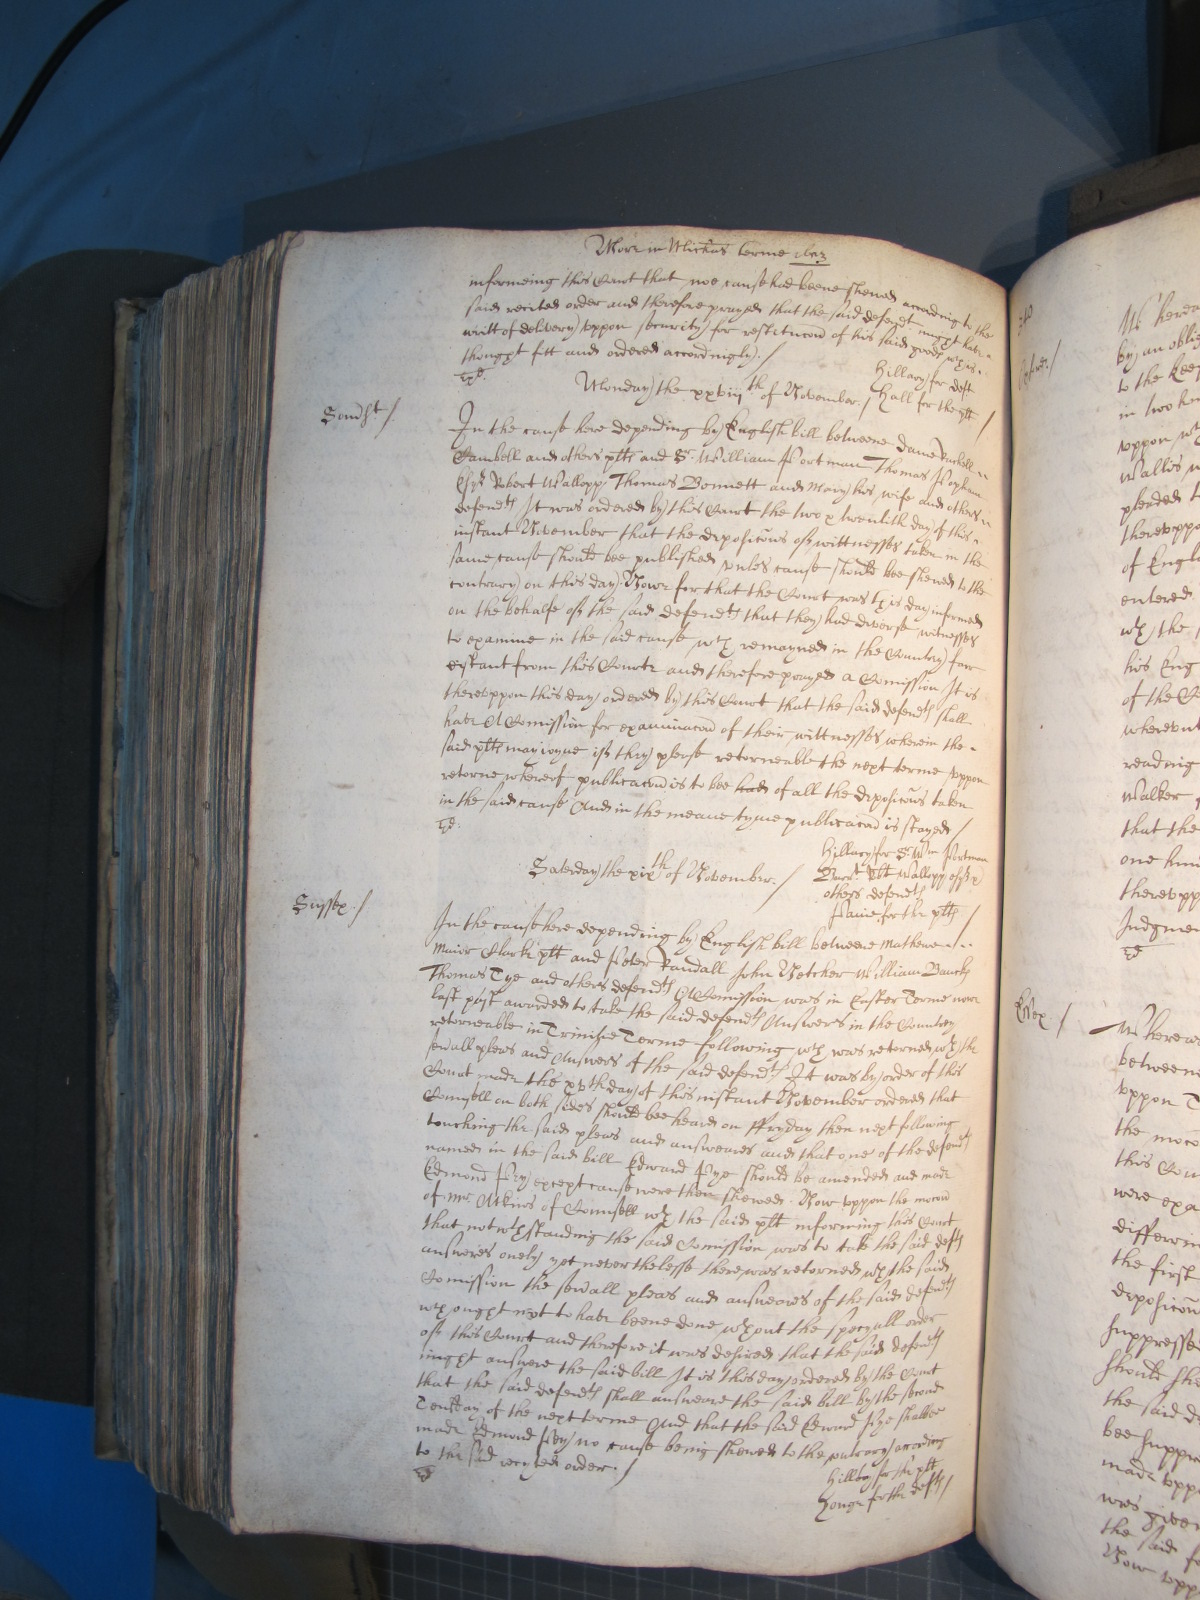 More in Michās terme
informeing this Court that noe cause had beene shewed according to the
said recited order and therefore prayed that the said defendt might have
writt of delivery vppon security for restitucon of his said goods wch is
thought fitt and ordered accordingly /
Hillary for deft
Hall for the plt
Monday the xxviiith of November /
Southt /
In the cause here depending by English bill betweene Dame Rachell
Cambell and others plts and Sr William Portman Thomas Popham
Esqrs Robert Wallopp Thomas Bennett and Mary his wife and others
defendts It was ordered by this Court the two & twentith day of this
instant November that the deposicōns of wittnesses taken in the
same cause should bee published vnles cause should bee shewed to the
contrary on this day. Nowe for that the Court was this day informed
on the behalfe of the said defendts that they had diverse witnesses
to examine in the said cause wch remayned in the Country farr
distant from this Courte and therefore prayed a Comission It is
therevppon this day ordered by this Court that the said defendts shall
have A Comission for examinacon of their wittnesses wherein the
said plts may ioyne if they please retorneable the next terme vppon
retorne whereof publicacon is to bee had of all the deposicōns taken
in the said cause And in the meane tyme publicacon is stayed /
Hillary for Sr Wm Portman
Barrt Rbt Wallopp esqr &
others defendts
Paine for the plts
Saterday the xixth of November /
Sussex /
In the cause here depending by English bill betweene Mathewe
Maior Clarke plt and Peter Randall John Netcher William
Thomas Tye and others defendts A Comission was in Easter Terme now
last past awarded to take the said defendts Answers in the Country
retorneable in Trinitie Terme following wch was retorned wth the
sevall pleas and Answers of the said defendts It was by order of this
Court made the xvth day of this instant November ordered that
Counsell on both sides should bee heard on ffryday then next following
touching the said pleas and answeares and that one of the defendts
named in the said bill Edward Pye should be amended and made
Edmond Pey except cause were then shewed. Now vppon the mocon
of Mr Atkins of Counsell wth the said plt informing this Court
that notwthstanding the said Comission was to take the said defts
answeres onely yet neverthelesse there was retorned wth the said
Comission the sevall pleas and answeares of the said defendts
wch ought not to have beene done wthout the speciall order
of this Court and therefore it was desired that the said defendts
might answere the said bill It is this day ordered by the Court
that the said defendts shall answeare the said bill by the second
Tuesday of the next terme And that the said Edward Pye shalbee
made Edmond Pey no cause being shewed to the contrary according
to the said recyted order. /
Hillary for the plt
Longe for the defts /
Essex /
Wherea
betweene
vppon
the moco
this Cou
were exa
differin
the first
deposicon
suppresse
should she
the said d
bee suppre
made vpp
was given
the said
Now vpp
by an oblig
to the
in two
vppon
Wallis
pleaded
therevppo
of Engl
entered
wth the
his Eng
of the C
wherevnt
reading
Walker
that the
one
therevpp
Judgmen